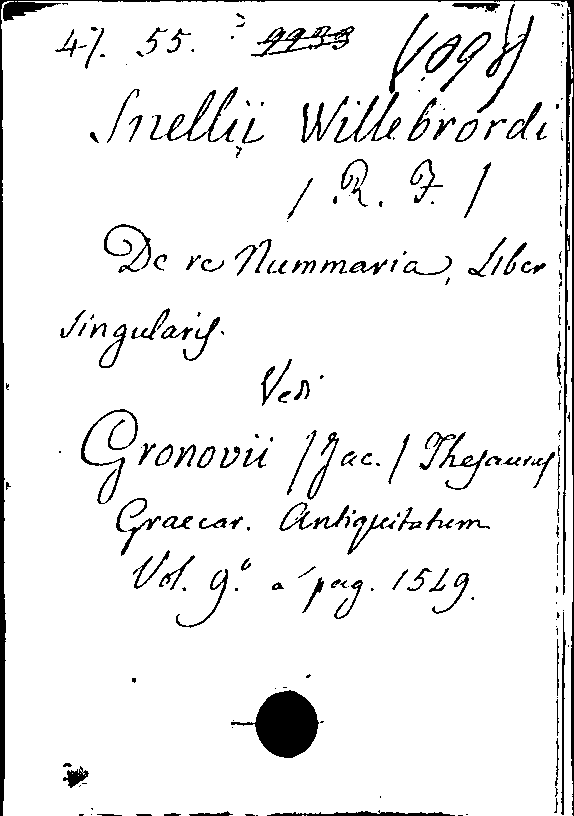 47. 55. 9933 (V.098)
Snellii Willebrordi
/ R. F. /
De re Nummaria, Liber
singularis.
Vedi
Gronovii / Jac. / Thesaurus
Graecar. Antiquitatum
Vol. 9.º a' pag. 1549.